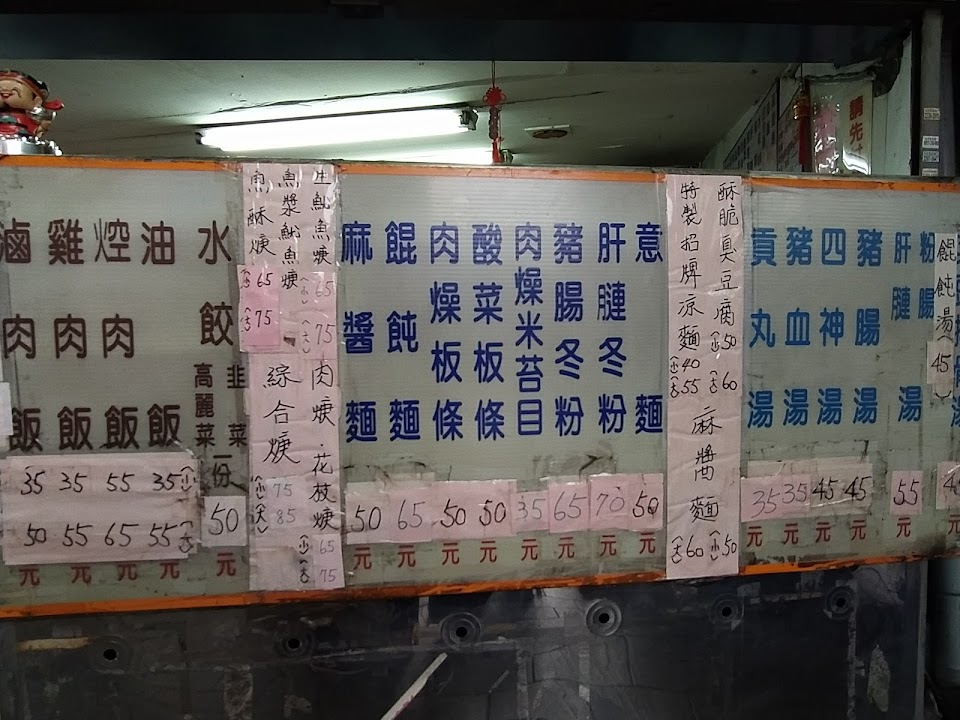 請先
餛飩湯(45)
粉腸
肝腱
湯
55元
豬腸湯
45元
四神湯
45元
豬血湯
35元
貢丸湯
35元
酥脆臭豆腐(小)50(大)60
特製招牌涼麵(小)40(大)55
麻醬麵(小)50(大)60
意麵
50元
肝腱冬粉
70元
豬腸冬粉
65元
肉燥米苔目
35元
酸菜板條
50元
肉燥板條
50元
餛飩麵
65元
麻醬麵
50元
生魷魚焿
魚漿魷魚焿
(小)65
(大)75
魚酥焿
(小)65
(大)75
肉焿.花枝焿
(小)65
(大)75
綜合焿
(小)75
(大)85
水餃
韭菜
高麗菜
一份
50元
油飯
35(小)
55(大)
元
焢肉飯
55
65
元
雞肉飯
35
55
元
滷肉飯
35
50
元